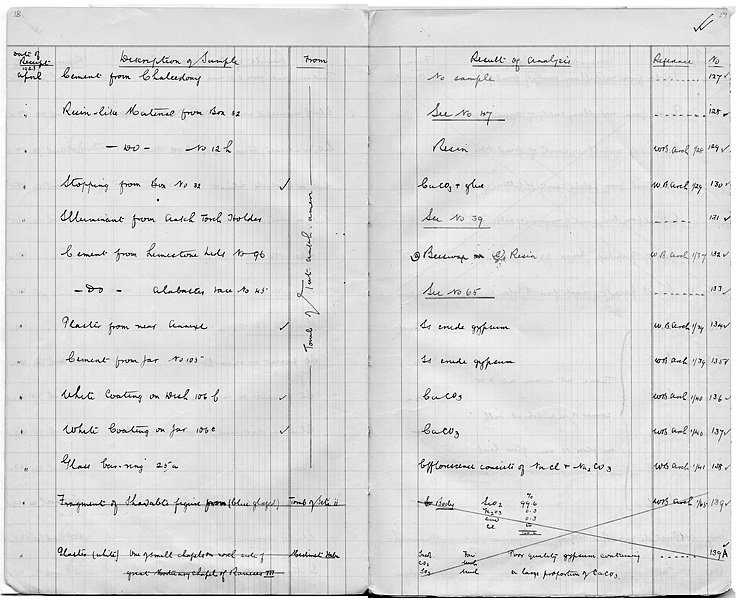 18
Date of Receipt Description of Sample From
1923
April Cement from Chalcedony
" Resin-like Material from Box 32
" — DO — No 12 h
" Stopping from Box No 32 ✓
" Illuminant from Torch Holder
" Cement from Limestone Lids No 96
" — DO — Alabaster vase No 45
" Plaster from near Annexe ✓
" Cement from Jar No 105
" White Coating on Dish 106 b ✓
" White Coating on Jar 106 c ✓
" Glass Ear-ring 25 a
Tomb of Tut-ankh-amen
Fragment of Shawabti figure from (blue glaze) Tomb of Seti II
" Plaster (white) One of small chapels on north side of Medinet Habu
great Mortuary Chapel of Rameses III
19
Result of Analysis Reference No
No sample 127 ✓
See No 47 128 ✓
Resin W.B. Arch 1/28 129 ✓
CaCO3 + glue W.B. Arch 1/29 130 ✓
See No 39 131 ✓
Beeswax Resin W.B. Arch 1/37 132 ✓
See No 65 133 ✓
Is crude gypsum W.B. Arch 1/39 134 ✓
Is crude gypsum W.B. Arch 1/39 135 ✓
CaCO3 W.B. Arch 1/40 136 ✓
CaCO3 W.B. Arch 1/40 137 ✓
Efflorescence consists of NaCl + Na2CO3 W.B. Arch 1/41 138 ✓
Body SiO2 % 99.6 W.B. Arch 1/65 139 ✓
Fe2O3 0.3
CuO 0.3
Poor quality gypsum containing 139A
CO2 much
SO3 much a large proportion of CaCO3.